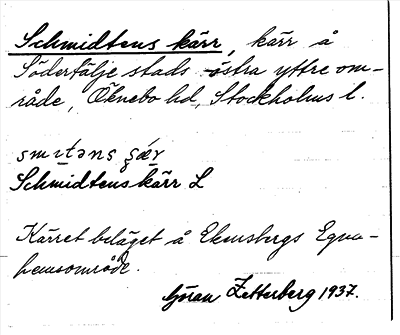 Schmidtens kärr, kärr å
Södertälje stads östra yttre om-
råde, Öknebo hd, Stockholms l.
smıtəns ʂær
Schmidtens kärr L
Kärret beläget å Ekensbergs Egna-
hemsområde.
Göran Zetterberg 1937.